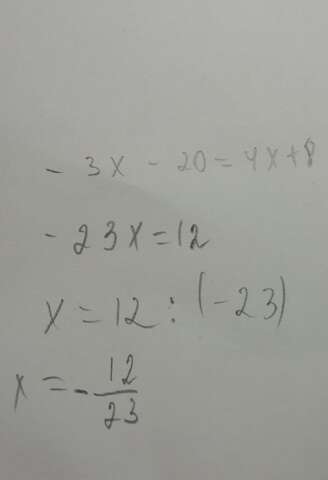 - 3x - 20 = 4x+8
- 23x = 12
x = 12 : (-23)
x = - 12/23